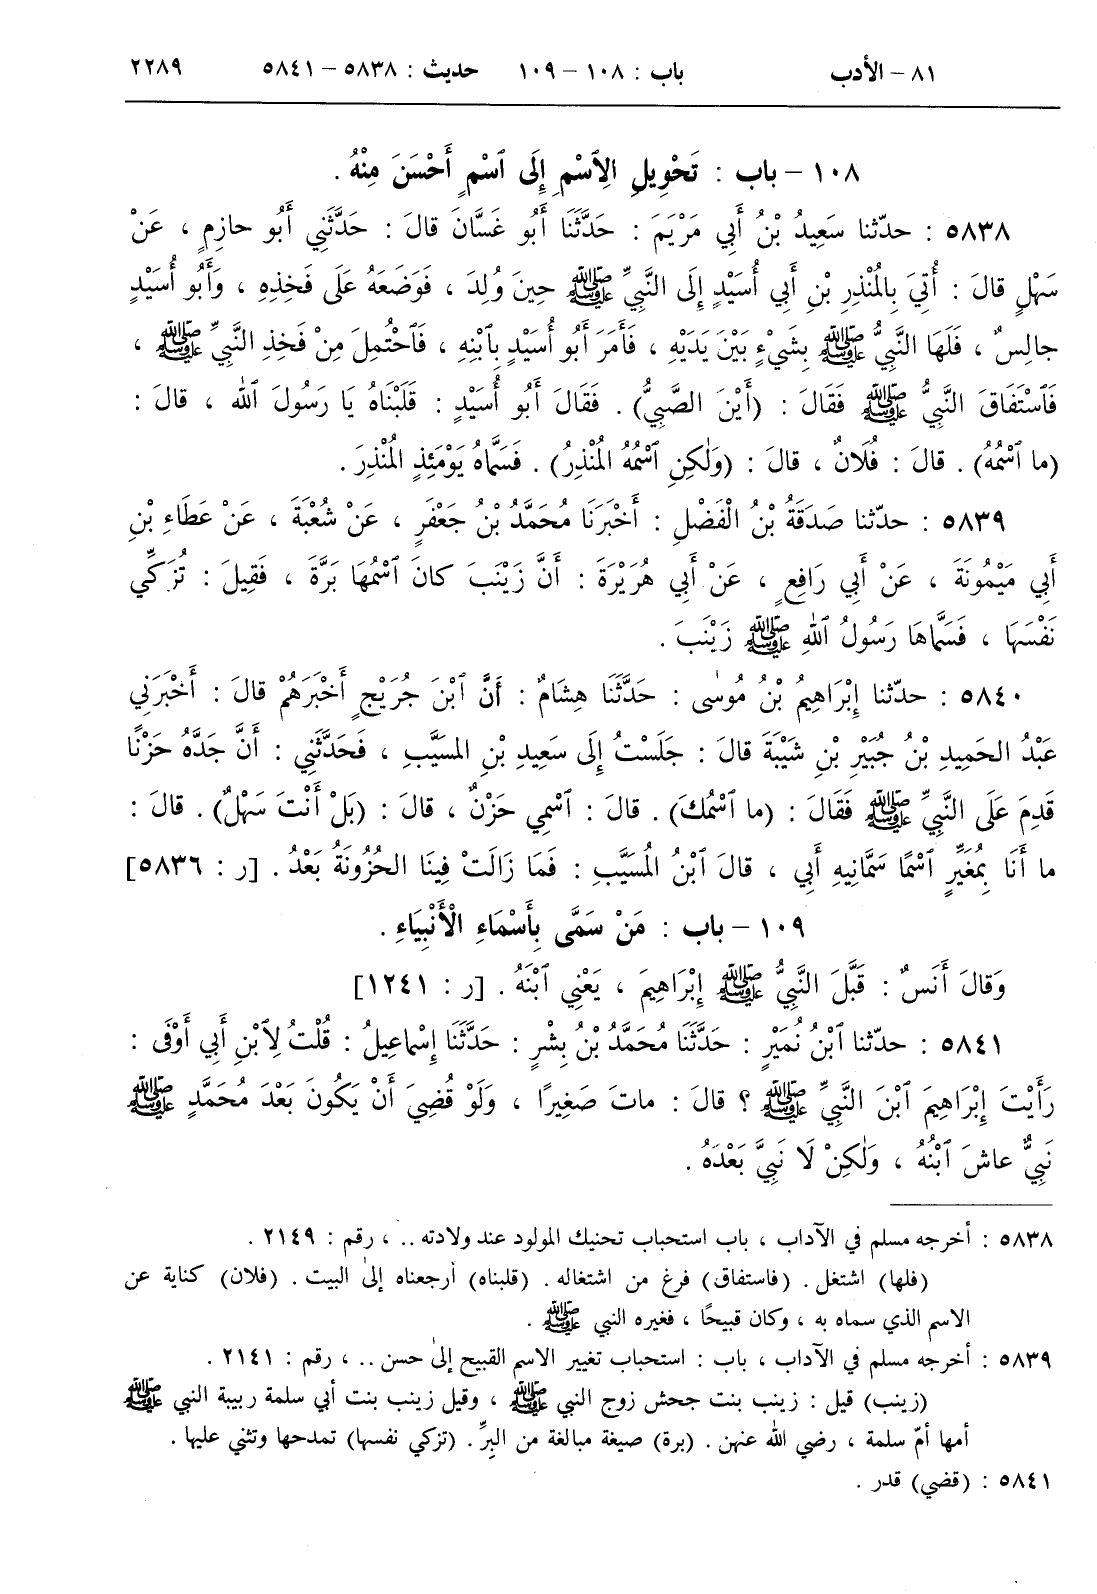 ٨١ – الأدب باب : ١٠٨ – ١٠٩ حديث : ٥٨٣٨ – ٥٨٤١ ٢٢٨٩
١٠٨ – باب : تَحْوِيلِ الِٱسْمِ إِلَى ٱسْمٍ أَحْسَنَ مِنْهُ .
٥٨٣٨ : حدّثنا سَعِيدُ بْنُ أَبِي مَرْيَمَ : حَدَّثَنَا أَبُو غَسَّانَ قالَ : حَدَّثَنِي أَبُو حازِمٍ ، عَنْ
سَهْلٍ قالَ : أُتِيَ بِالْمُنْذِرِ بْنِ أَبِي أُسَيْدٍ إِلَى النَّبِيِّ ﷺ حِينَ وُلِدَ ، فَوَضَعَهُ عَلَى فَخِذِهِ ، وَأَبُو أُسَيْدٍ
جالِسٌ ، فَلَهَا النَّبِيُّ ﷺ بِشَيْءٍ بَيْنَ يَدَيْهِ ، فَأَمَرَ أَبُو أُسَيْدٍ بِٱبْنِهِ ، فَٱحْتُمِلَ مِنْ فَخِذِ النَّبِيِّ ﷺ ،
فَٱسْتَفَاقَ النَّبِيُّ ﷺ فَقَالَ : (أَيْنَ الصَّبِيُّ) . فَقَالَ أَبُو أُسَيْدٍ : قَلَبْنَاهُ يَا رَسُولَ ٱللهِ ، قالَ :
(ما ٱسْمُهُ) . قالَ : فُلَانٌ ، قالَ : (وَلٰكِنِ ٱسْمُهُ الْمُنْذِرُ) . فَسَمَّاهُ يَوْمَئِذٍ الْمُنْذِرَ .
٥٨٣٩ : حدّثنا صَدَقَةُ بْنُ الْفَضْلِ : أَخْبَرَنَا مُحَمَّدُ بْنُ جَعْفَرٍ ، عَنْ شُعْبَةَ ، عَنْ عَطَاءِ بْنِ
أَبِي مَيْمُونَةَ ، عَنْ أَبِي رَافِعٍ ، عَنْ أَبِي هُرَيْرَةَ : أَنَّ زَيْنَبَ كانَ ٱسْمُهَا بَرَّةَ ، فَقِيلَ : تُزَكِّي
نَفْسَهَا ، فَسَمَّاهَا رَسُولُ ٱللهِ ﷺ زَيْنَبَ .
٥٨٤٠ : حدّثنا إِبْرَاهِيمُ بْنُ مُوسٰى : حَدَّثَنَا هِشَامٌ : أَنَّ ٱبْنَ جُرَيْجٍ أَخْبَرَهُمْ قالَ : أَخْبَرَنِي
عَبْدُ الحَمِيدِ بْنُ جُبَيْرِ بْنِ شَيْبَةَ قالَ : جَلَسْتُ إِلَى سَعِيدِ بْنِ المسَيَّبِ ، فَحَدَّثَنِي : أَنَّ جَدَّهُ حَزْنًا
قَدِمَ عَلَى النَّبِيِّ ﷺ فَقَالَ : (ما ٱسْمُكَ) . قالَ : ٱسْمِي حَزْنٌ ، قالَ : (بَلْ أَنْتَ سَهْلٌ) . قالَ :
ما أَنَا بِمُغَيِّرٍ ٱسْمًا سَمَّانِيهِ أَبِي ، قالَ ٱبْنُ الْمُسَيَّبِ : فَمَا زَالَتْ فِينَا الحُزُونَةُ بَعْدُ . [ر : ٥٨٣٦]
١٠٩ – باب : مَنْ سَمَّى بِأَسْمَاءِ الْأَنْبِيَاءِ .
وَقالَ أَنَسٌ : قَبَّلَ النَّبِيُّ ﷺ إِبْرَاهِيمَ ، يَعْنِي ٱبْنَهُ . [ر : ١٢٤١]
٥٨٤١ : حدّثنا ٱبْنُ نُمَيْرٍ : حَدَّثَنَا مُحَمَّدُ بْنُ بِشْرٍ : حَدَّثَنَا إِسْماعِيلُ : قُلْتُ لِٱبْنِ أَبِي أَوْفَى :
رَأَيْتَ إِبْرَاهِيمَ ٱبْنَ النَّبِيِّ ﷺ ؟ قالَ : ماتَ صَغِيرًا ، وَلَوْ قُضِيَ أَنْ يَكُونَ بَعْدَ مُحَمَّدٍ ﷺ
نَبِيٌّ عاشَ ٱبْنُهُ ، وَلٰكِنْ لَا نَبِيَّ بَعْدَهُ .
٥٨٣٨ : أخرجه مسلم في الآداب ، باب استحباب تحنيك المولود عند ولادته .. ، رقم : ٢١٤٩ .
(فلها) اشتغل . (فاستفاق) فرغ من اشتغاله . (قلبناه) أرجعناه إلىٰ البيت . (فلان) كناية عن
الاسم الذي سماه به ، وكان قبيحًا ، فغيره النبي ﷺ .
٥٨٣٩ : أخرجه مسلم في الآداب ، باب : استحباب تغيير الاسم القبيح إلىٰ حسن .. ، رقم : ٢١٤١ .
(زينب) قيل : زينب بنت جحش زوج النبي ﷺ ، وقيل زينب بنت أبي سلمة ربيبة النبي ﷺ
أمها أمّ سلمة ، رضي الله عنهن . (برة) صيغة مبالغة من البِرِّ . (تزكي نفسها) تمدحها وتثني عليها .
٥٨٤١ : (قضي) قدر .